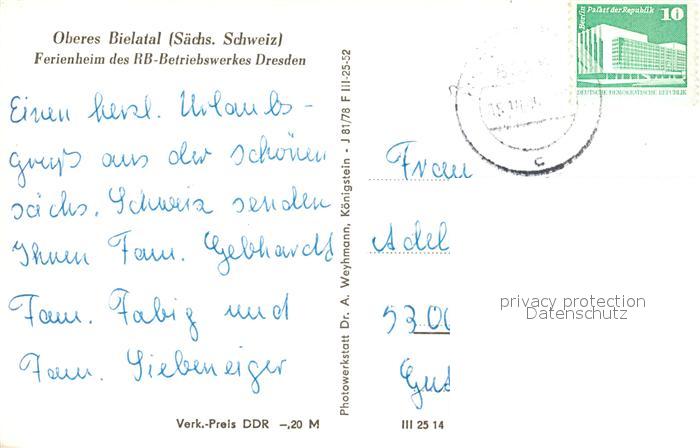 Oberes Bielatal (Sächs. Schweiz)
Ferienheim des RB-Betriebswerkes Dresden
Einen herzl. Urlaubs-
gruß aus der schönen
sächs. Schweiz senden
Ihnen Fam. Gebhardt
Fam. Fabig und
Fam. Siebeneiger
Verk.-Preis DDR –,20 M
Photowerkstatt Dr. A. Weyhmann, Königstein - J 81/78 F III-25-52
Berlin Palast der Republik
10
DEUTSCHE DEMOKRATISCHE REPUBLIK
c
Frau
Adel
53 00
Gus
III 25 14
privacy protection
Datenschutz